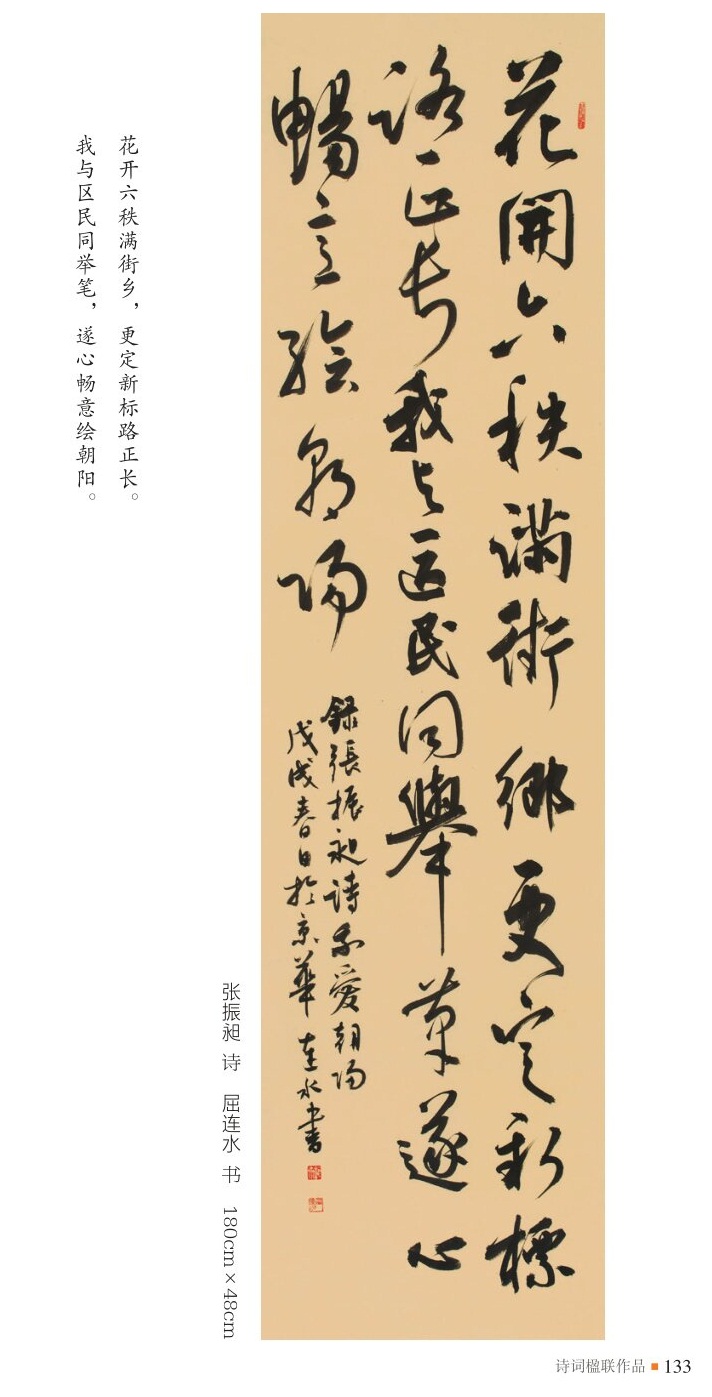 花開六秩滿街鄉更定新標
路正長我与區民同舉筆遂心
暢意繪朝陽
錄張振昶詩我愛朝陽
戊戌春日於京華連水書
花开六秩满街乡，更定新标路正长。
我与区民同举笔，遂心畅意绘朝阳。
张振昶 诗 屈连水 书 180cm×48cm
诗词楹联作品 ■ 133